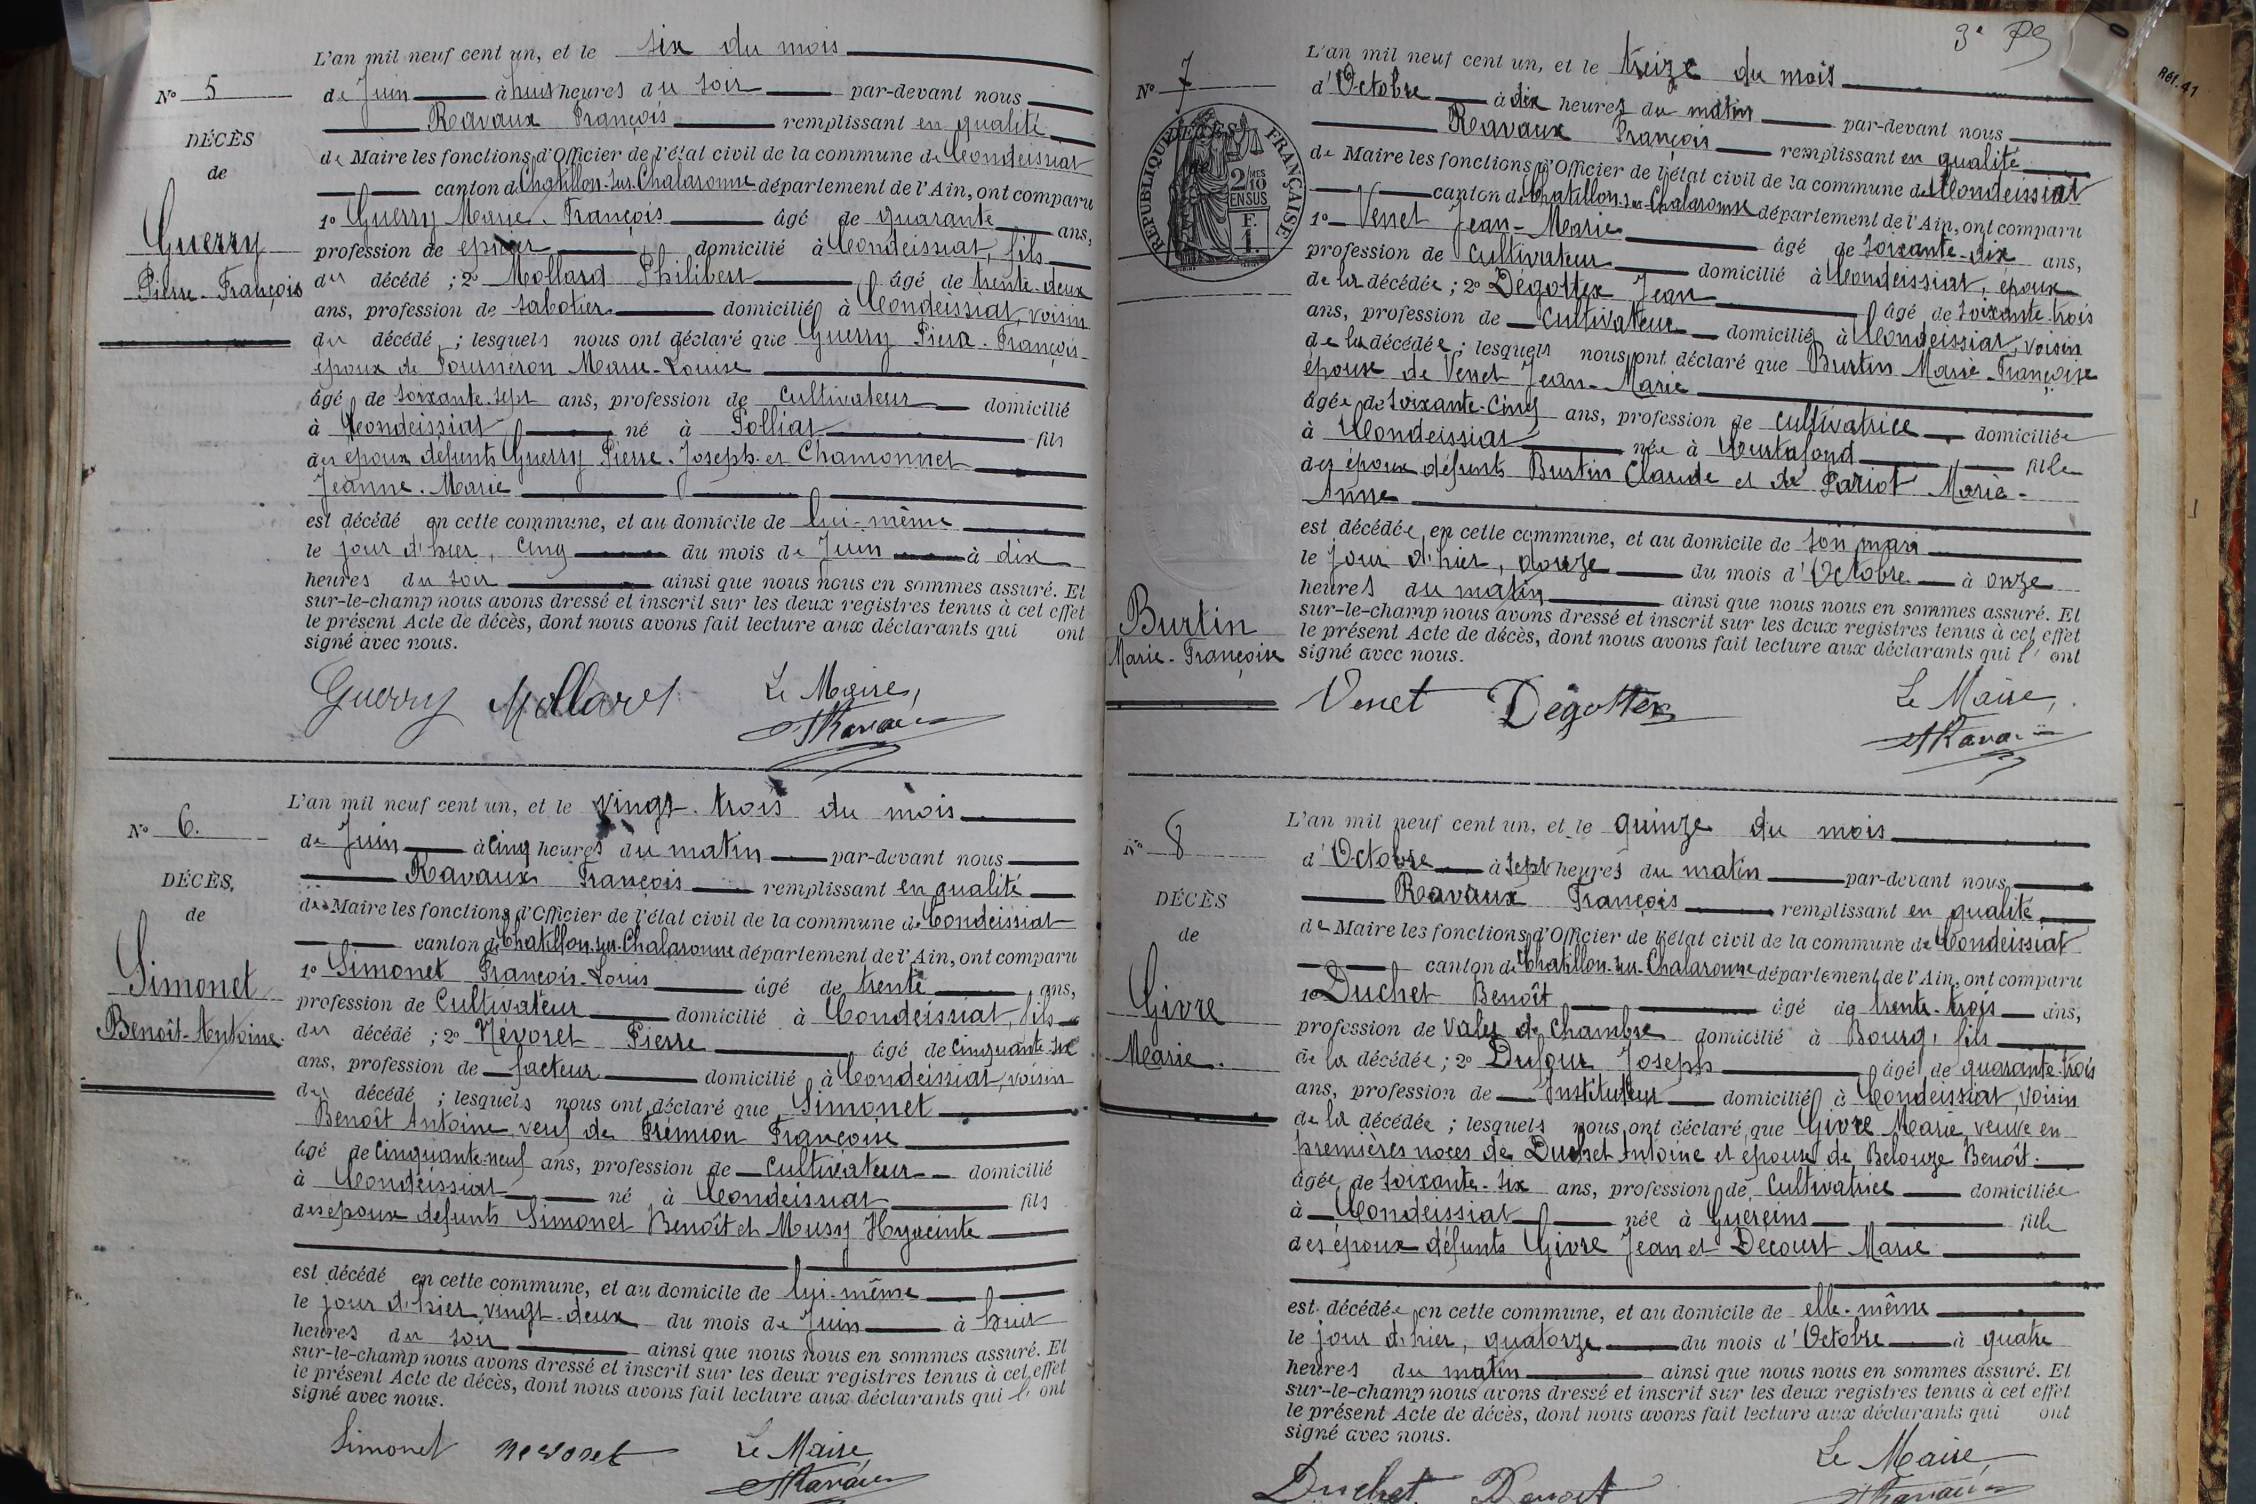 L'an mil neuf cent un, et le six du mois
Nº 5
de Juin à huit heures du soir par-devant nous
Ravaux François remplissant en qualité
DÉCÈS
de Maire les fonctions d'Officier de l'état civil de la commune de Condeissiat
de
canton de Châtillon-sur-Chalaronne département de l'Ain, ont comparu
1º Guerry Marie-François âgé de quarante ans,
Guerry
profession de épicier domicilié à Condeissiat, fils
Pierre-François
du décédé ; 2º Mollard Philibert âgé de trente-deux
ans, profession de sabotier domicilié à Condeissiat, voisin
du décédé ; lesquels nous ont déclaré que Guerry Pierre-François
époux de Fourneron Marie-Louise
âgé de soixante-sept ans, profession de cultivateur domicilié
à Condeissiat né à Polliat fils
des époux défunts Guerry Pierre-Joseph et Chamonnet
Jeanne-Marie
est décédé en cette commune, et au domicile de lui-même
le jour d'hier, cinq du mois de Juin à dix
heures du soir ainsi que nous nous en sommes assuré. Et
sur-le-champ nous avons dressé et inscrit sur les deux registres tenus à cet effet
le présent Acte de décès, dont nous avons fait lecture aux déclarants qui ont
signé avec nous.
Guerry Mollard Le Maire,
Ravaux
L'an mil neuf cent un, et le vingt-trois du mois
Nº 6.
de Juin à cinq heures du matin par-devant nous
Ravaux François remplissant en qualité
DÉCÈS,
de Maire les fonctions d'Officier de l'état civil de la commune de Condeissiat
de
canton de Châtillon-sur-Chalaronne département de l'Ain, ont comparu
1º Simonet François-Louis âgé de trente ans,
Simonet
profession de Cultivateur domicilié à Condeissiat, fils
Benoît-Antoine.
du décédé ; 2º Névoret Pierre âgé de cinquante-six
ans, profession de facteur domicilié à Condeissiat, voisin
du décédé ; lesquels nous ont déclaré que Simonet
Benoît Antoine veuf de Prémion Françoise
âgé de cinquante-neuf ans, profession de cultivateur domicilié
à Condeissiat né à Condeissiat fils
des époux défunts Simonet Benoît et Mussy Hyacinte
est décédé en cette commune, et au domicile de lui-même
le jour d'hier vingt-deux du mois de Juin à huit
heures du soir ainsi que nous nous en sommes assuré. Et
sur-le-champ nous avons dressé et inscrit sur les deux registres tenus à cet effet
le présent Acte de décès, dont nous avons fait lecture aux déclarants qui l' ont
signé avec nous.
Simonet nevoret Le Maire,
Ravaux
3e
Réf. 41
L'an mil neuf cent un, et le treize du mois
Nº 7
d'Octobre à dix heures du matin par-devant nous
Ravaux François remplissant en qualité
RÉPUBLIQUE FRANÇAISE
2/10 MES
EN SUS
F.
1.
de Maire les fonctions d'Officier de l'état civil de la commune de Condeissiat
canton de Châtillon-sur-Chalaronne département de l'Ain, ont comparu
1º Venet Jean-Marie âgé de soixante-dix ans,
profession de cultivateur domicilié à Condeissiat, époux
de la décédée ; 2º Dégottex Jean âgé de soixante-trois
ans, profession de cultivateur domicilié à Condeissiat, voisin
de la décédée ; lesquels nous ont déclaré que Burtin Marie-Françoise
épouse de Venet Jean-Marie
âgée de soixante-cinq ans, profession de cultivatrice domiciliée
à Condeissiat née à Curtafond fille
des époux défunts Burtin Claude et de Pariot Marie-
Anne
est décédée en cette commune, et au domicile de son mari
le jour d'hier, douze du mois d'Octobre à onze
heures du matin ainsi que nous nous en sommes assuré. Et
sur-le-champ nous avons dressé et inscrit sur les deux registres tenus à cet effet
Burtin
le présent Acte de décès, dont nous avons fait lecture aux déclarants qui l' ont
Marie-Françoise
signé avec nous.
Venet Dégottex Le Maire,
Ravaux
L'an mil neuf cent un, et le quinze du mois
Nº 8
d'Octobre à sept heures du matin par-devant nous
Ravaux François remplissant en qualité
DÉCÈS
de Maire les fonctions d'Officier de l'état civil de la commune de Condeissiat
de
canton de Châtillon-sur-Chalaronne département de l'Ain, ont comparu
1º Duchet Benoît âgé de trente-trois ans,
Givre
profession de valet de chambre domicilié à Bourg, fils
Marie.
de la décédée ; 2º Dufour Joseph âgé de quarante-trois
ans, profession de Instituteur domicilié à Condeissiat, voisin
de la décédée ; lesquels nous ont déclaré que Givre Marie veuve en
premières noces de Duchet Antoine et épouse de Belouze Benoît.
âgée de soixante-six ans, profession de cultivatrice domiciliée
à Condeissiat née à Guéreins fille
des époux défunts Givre Jean et Decourt Marie
est décédée en cette commune, et au domicile de elle-même
le jour d'hier, quatorze du mois d'Octobre à quatre
heures du matin ainsi que nous nous en sommes assuré. Et
sur-le-champ nous avons dressé et inscrit sur les deux registres tenus à cet effet
le présent Acte de décès, dont nous avons fait lecture aux déclarants qui ont
signé avec nous.
Le Maire,
Duchet Benoit Ravaux